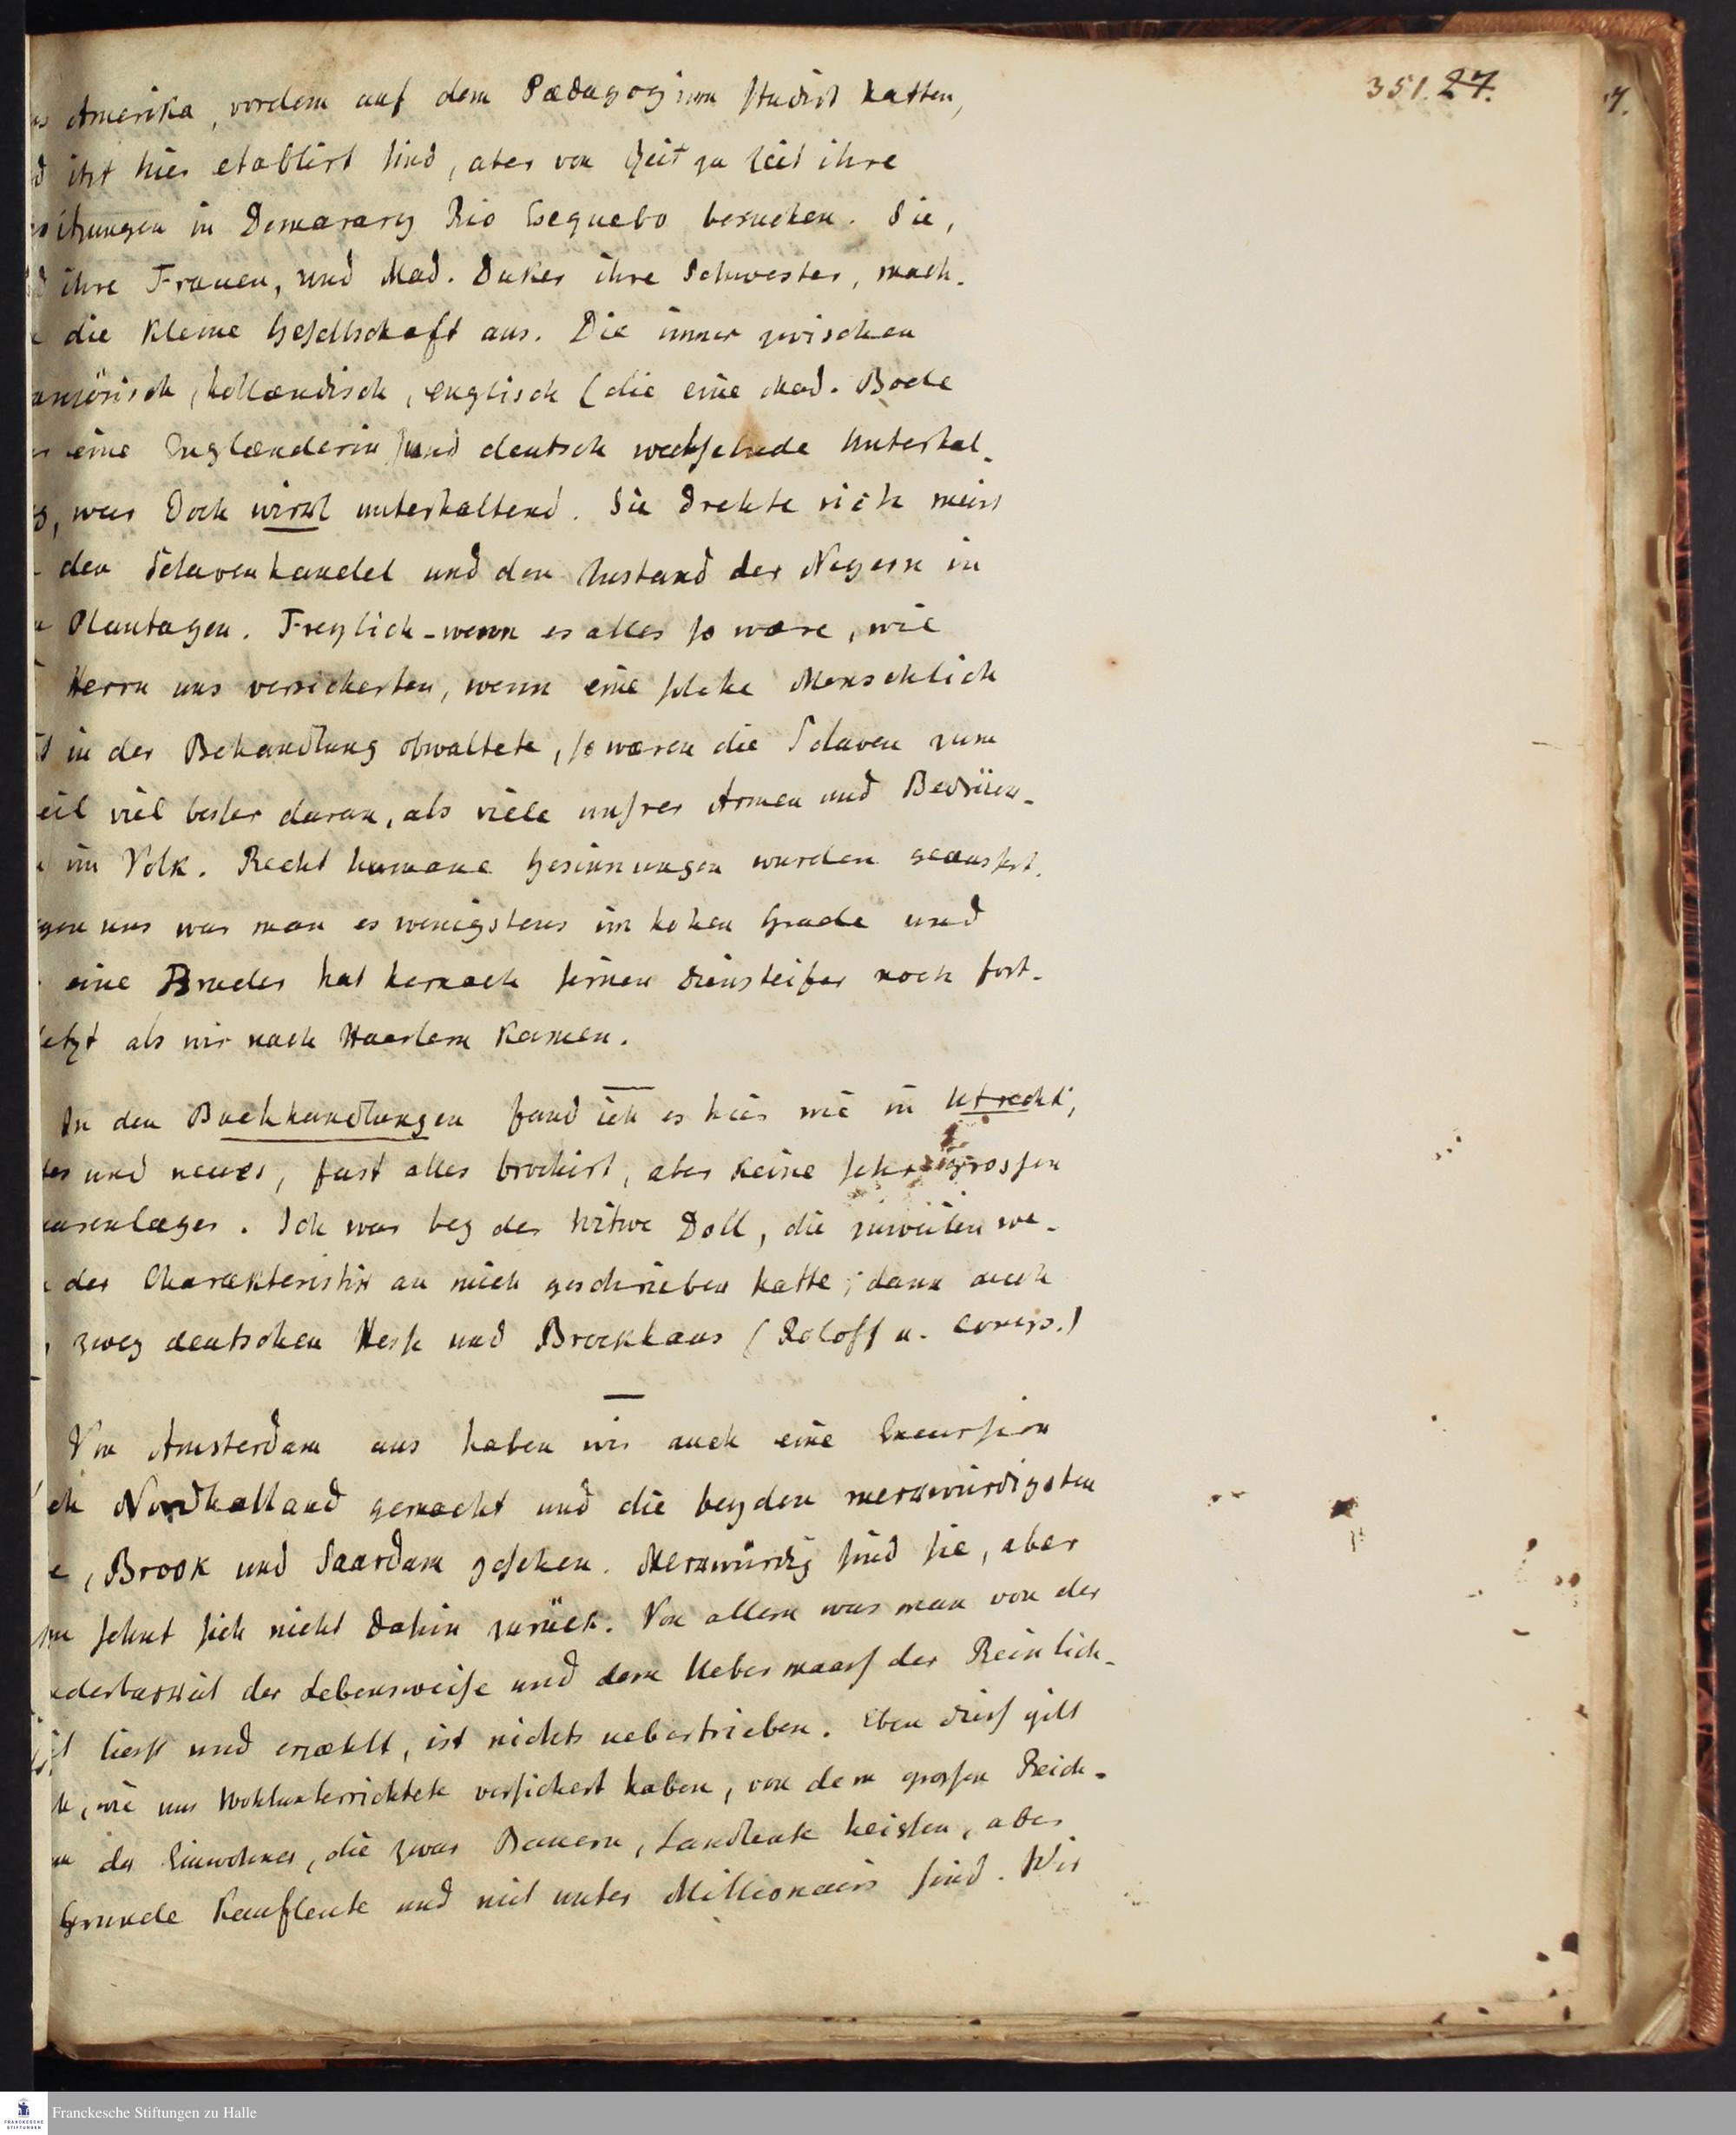 351. 27.
Amerika, vordem auf dem Pædagogium studirt hatten,
itzt hier etablirt sind, aber von Zeit zu Zeit ihre
sitzungen in Demarary Rio Essequebo besuchen. Sie,
ihre Frauen, und Mad. Duker ihre Schwester, mach-
die kleine Gesellschaft aus. Die immer zwischen
französisch, hollændisch, englisch (die eine Mad. Bode
eine Englænderin) und deutsch wechselnde Unterhal-
war doch wirkl unterhaltend. Sie drehte sich meist
den Sclavenhandel und den Zustand der Negern in
Plantagen. Freylich - wenn es alles so wære, wie
Herrn uns versicherten, wenn eine solche Menschlich
in der Behandlung obwaltete, so wæren die Sclaven zum
eil viel besser daran, als viele unsrer Armen und Bedrück-
im Volk. Recht humane Gesinnungen wurden geæussert.
gen uns war man es wenigstens im hohen Grade und
eine Bruder hat hernach seinen Diensteifer noch fort-
setzt als wir nach Haarlem kamen.
In den Buchhandlungen fand ich es hier wie in Utrecht;
und neues, fast alles brochirt, aber keine sehr grossen
arenlager. Ich war bey der Witwe Doll, die zuweilen we-
der Charakteristik an mich geschrieben hatte; dann auch
zwey deutschen Hesse und Brockhaus (Roloff u. Comp.)
Von Amsterdam aus haben wir auch eine Excursion
ch Nordholland gemacht und die beyden merkwürdigsten
e, Brook und Saardam gesehen. Merkwürdig sind sie, aber
sehnt sich nicht dahin zurück. Von allem was man von der
nderbarkeit der Lebensweise und dem Uebermaass der Reinlich-
liesst und erzæhlt, ist nichts uebertrieben. Eben diess gilt
wie uns Wohlunterrichtete versichert haben, von dem grossen Reich-
der Einwohner, die zwar Bauern, Landleute heissen, aber
Grunde Kaufleute und mit unter Millionairs sind. Wir
Franckesche Stiftungen zu Halle
FRANCKESCHE
STIFTUNGEN